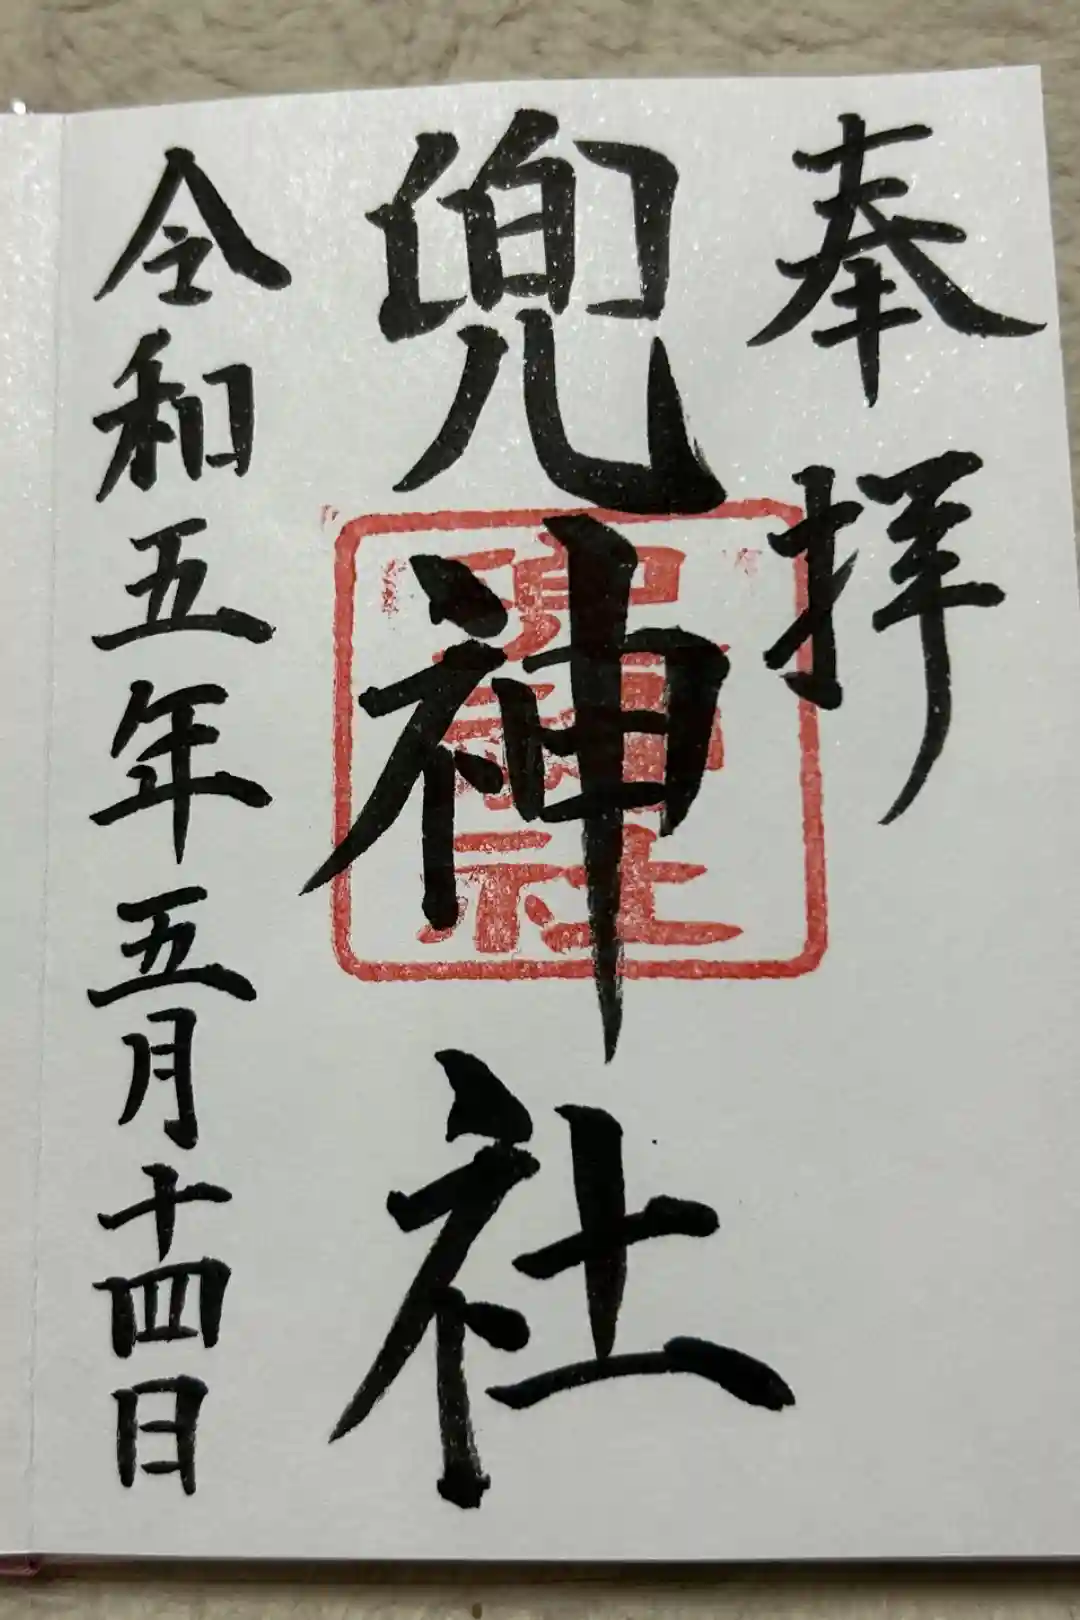 奉拝
兜神社
兜神社
令和五年五月十四日